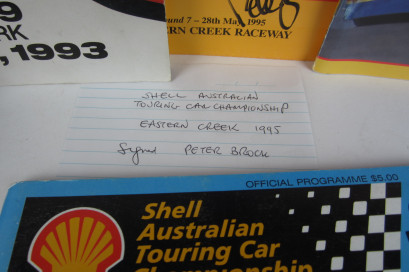 9
RK
,1993
und 7 - 28th May 1995
ERN CREEK RACEWAY
SHELL AUSTRALIAN
TOURING CAR CHAMPIONSHIP
EASTERN CREEK 1995
Signed PETER BROCK
OFFICIAL PROGRAMME $5.00
Shell
Australian
Touring Car
Championship